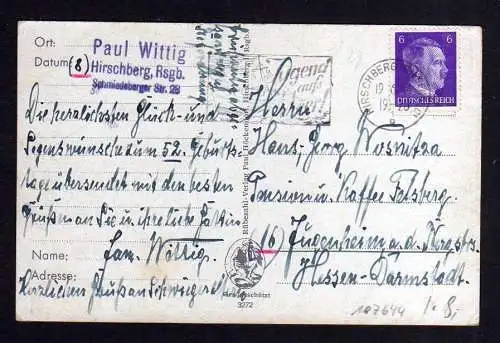 Ort:
Datum
(8)
Paul Wittig
Hirschberg, Rsgb.
Schmiedeberger Str. 28
Die herzlichsten Glück- und
Segenswünsche zum 52. Geburts-
tage übersendet mit den besten
Grüßen an Sie u. ihre liebe Gattin
Name: Fam. Wittig.
Adresse:
Herzlichen Gruß an
Jugend
aufs
6
6
DEUTSCHES REICH
HIRSCHBERG
19
Herrn
Hans-Georg Wosnitza
Pension u. Kaffee Felsberg.
(16) Jugenheim a. d. Bergstr.
Hessen-Darmstadt.
Rübezahl-Verlag Paul Höckendorf
3272
107644